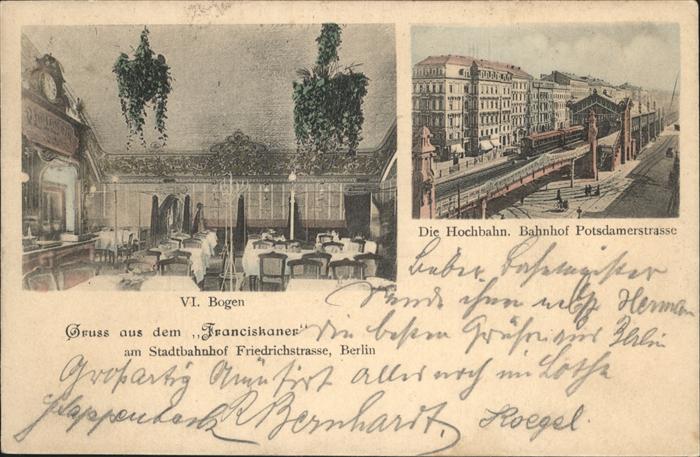 VI. Bogen
Die Hochbahn. Bahnhof Potsdamerstrasse
Gruss aus dem „Franciskaner"
am Stadtbahnhof Friedrichstrasse, Berlin
Lieber
Sende ihnen nebst Herman
die besten Grüße aus Berlin
Großartig Amüsirt alles noch im Lothe
R Bernhardt. Koegel.